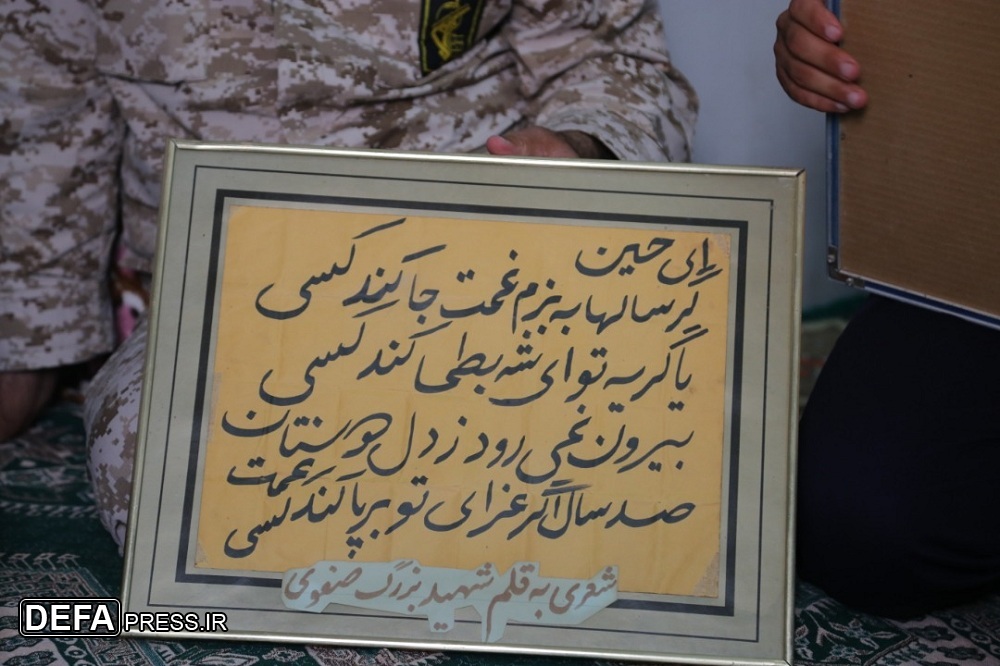 ای حسین
گر سالها به بزم غمت جا کند کسی
یا گریه تو ای شه بطحا کند کسی
بیرون نمی رود ز دل دوستان غمت
صد سال اگر عزای تو برپا کند کسی
شعری به قلم شهید بزرگ صفوی
DEFAPRESS.IR